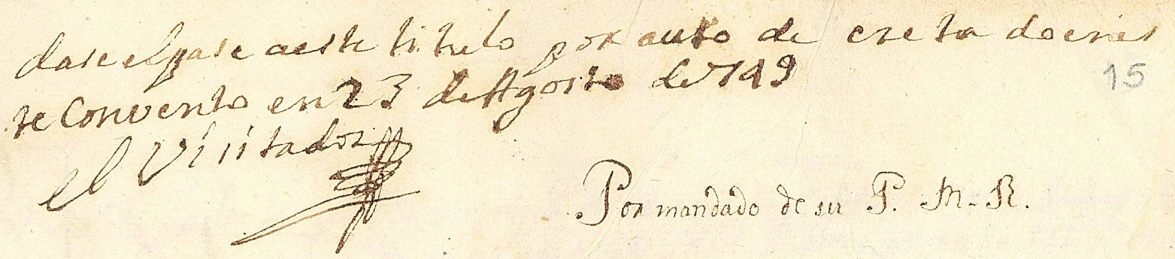 dase el pase aeste titulo por auto de creta do enes
te Convento en 23 de Agosto de 749
15
el Visitador
Por mandado de su P. M. R.